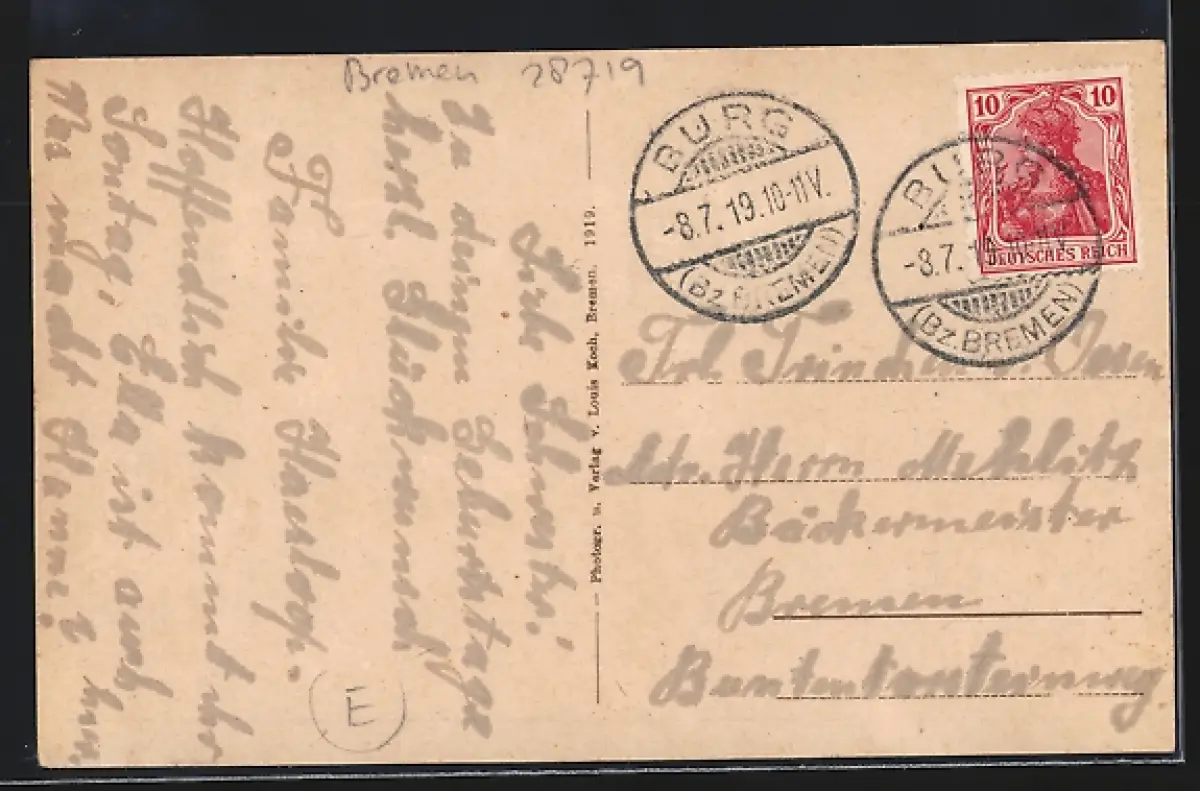 Bremen 28719
Liebe
Zu deinem Geburtstage
herzl. Glückwunsch
Familie
Hoffendlich kommt ihr
Sontag, Ella ist auch
Was macht
E
Photogr. u. Verlag v. Louis Koch, Bremen. 1919.
BURG
-8.7.19.10-11V.
(Bz. BREMEN)
BURG
-8.7.
(Bz. BREMEN)
10 10
DEUTSCHES REICH
Frl.
Adr. Herrn
Bäckermeister
Bremen